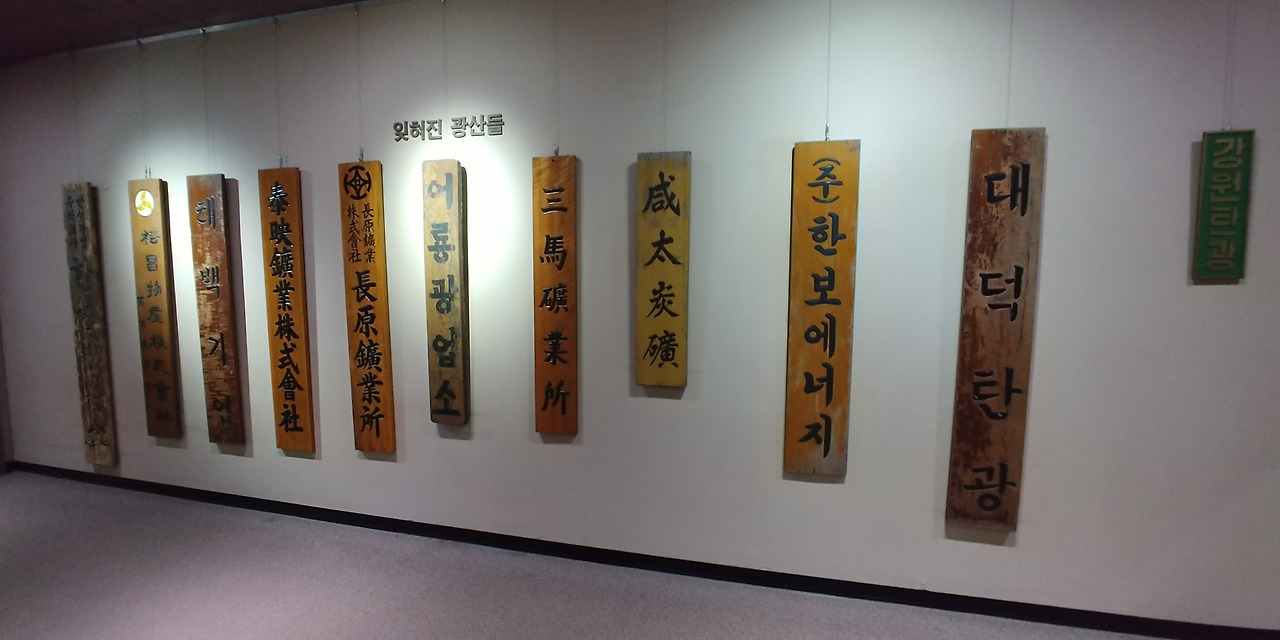 잊혀진 광산들
裕昌物産株式會社
태백기업
泰映鑛業株式會社
長原鑛業
株式會社
長原鑛業所
어룡광업소
三馬礦業所
咸太炭礦
(주)한보에너지
대덕탄광
강원탄광